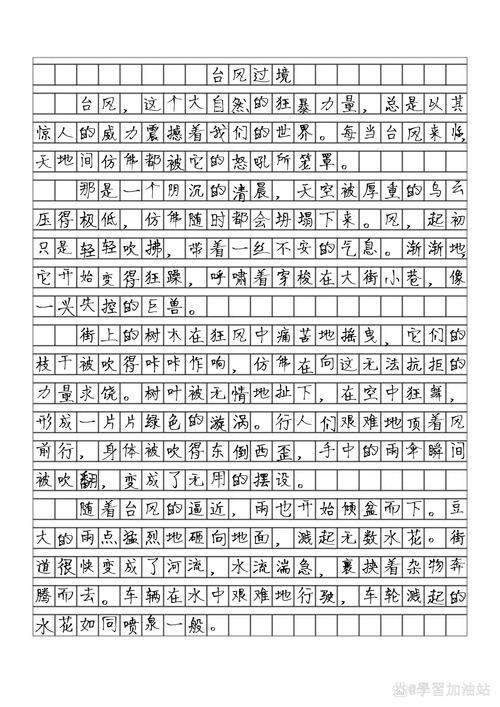 台风过境
台风，这个大自然的狂暴力量，总是以其
惊人的威力震撼着我们的世界。每当台风来临，
天地间仿佛都被它的怒吼所笼罩。
那是一个阴沉的清晨，天空被厚重的乌云
压得极低，仿佛随时都会坍塌下来。风，起初
只是轻轻吹拂，带着一丝不安的气息。渐渐地，
它开始变得狂躁，呼啸着穿梭在大街小巷，像
一头失控的巨兽。
街上的树木在狂风中痛苦地摇曳，它们的
枝干被吹得咔咔作响，仿佛在向这无法抗拒的
力量求饶。树叶被无情地扯下，在空中狂舞，
形成一片片绿色的漩涡。行人们艰难地顶着风
前行，身体被吹得东倒西歪，手中的雨伞瞬间
被吹翻，变成了无用的摆设。
随着台风的逼近，雨也开始倾盆而下。豆
大的雨点猛烈地砸向地面，溅起无数水花。街
道很快变成了河流，水流湍急，裹挟着杂物奔
腾而去。车辆在水中艰难地行驶，车轮溅起的
水花如同喷泉一般。
@學習加油站